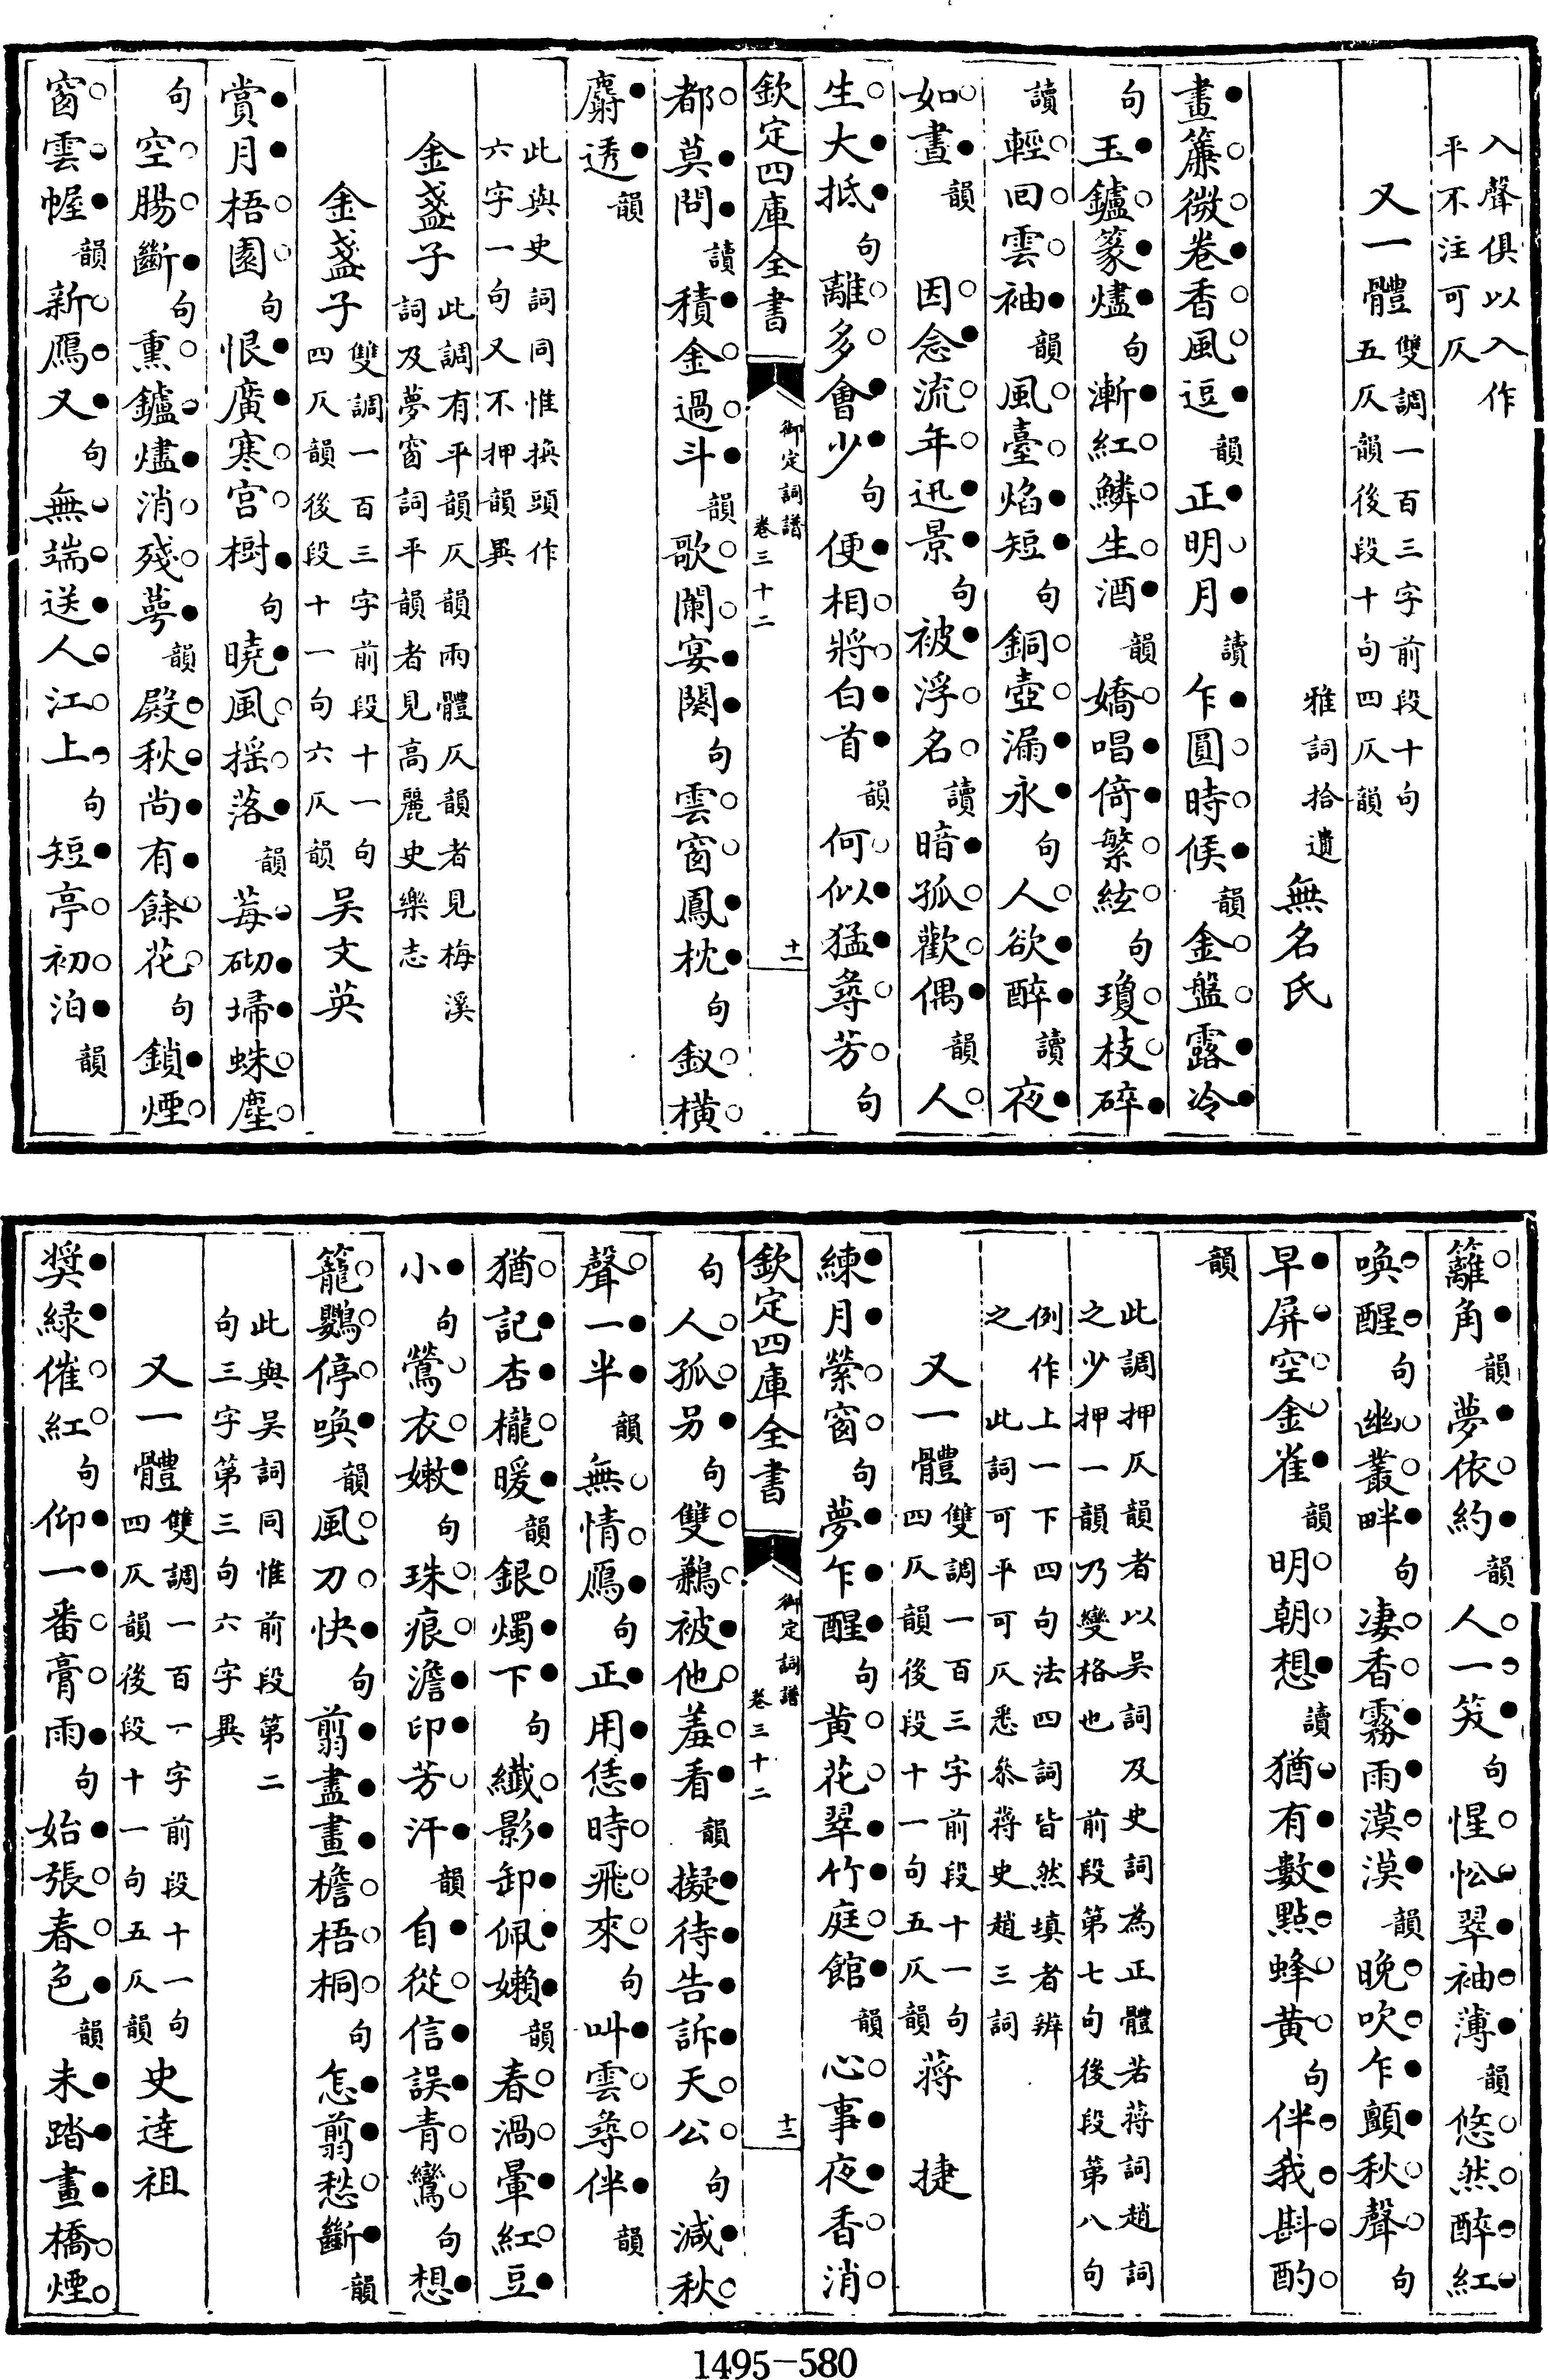 入聲俱以入作
平不注可仄
又一體雙調一百三字前段十句
五仄韻後段十句四仄韻
雅詞拾遺無名氏
畫簾微卷香風逗韻正明月讀乍圓時候韻金盤露冷
句玉鑪篆燼句漸紅鱗生酒韻嬌唱倚繁絃句瓊枝碎
讀輕回雲袖韻風臺焰短句銅壺漏永句人欲醉讀夜
如晝韻因念流年迅景句被浮名讀暗孤歡偶韻人
生大抵句離多會少句便相將白首韻何似猛尋芳句
欽定四庫全書
御定詞譜
卷三十二
十一
都莫問讀積金過斗韻歌闌宴闋句雲窗鳳枕句釵橫
麝透韻
此與史詞同惟換頭作
六字一句又不押韻異
金盞子此調有平韻仄韻兩體仄韻者見梅溪
詞及夢窗詞平韻者見高麗史樂志
金盞子雙調一百三字前段十一句
四仄韻後段十一句六仄韻吳文英
賞月梧園句恨廣寒宮樹句曉風搖落韻莓砌埽蛛塵
句空腸斷句熏鑪燼消殘萼韻殿秋尚有餘花句鎖煙
窗雲幄韻新鴈又句無端送人江上句短亭初泊韻
籬角韻夢依約韻人一笑句惺忪翠袖薄韻悠然醉紅
喚醒句幽叢畔句凄香霧雨漠漠韻晚吹乍顫秋聲句
早屏空金雀韻明朝想讀猶有數點蜂黃句伴我斟酌
韻
此調押仄韻者以吳詞及史詞為正體若蔣詞趙詞
之少押一韻乃變格也前段第七句後段第八句
例作上一下四句法四詞皆然填者辨
之此詞可平可仄悉叅蔣史趙三詞
又一體雙調一百三字前段十一句
四仄韻後段十一句五仄韻蔣捷
練月縈窗句夢乍醒句黃花翠竹庭館韻心事夜香消
欽定四庫全書
御定詞譜
卷三十二
十二
句人孤另句雙鶼被他羞看韻擬待告訴天公句減秋
聲一半韻無情鴈句正用恁時飛來句叫雲尋伴韻
猶記杏櫳暖韻銀燭下句纖影卸佩嬾韻春渦暈紅豆
小句鶯衣嫩句珠痕澹印芳汗韻自從信誤青鸞句想
籠鸚停喚韻風刀快句翦盡畫檐梧桐句怎翦愁斷韻
此與吳詞同惟前段第二
句三字第三句六字異
又一體雙調一百一字前段十一句
四仄韻後段十一句五仄韻史達祖
獎綠催紅句仰一番膏雨句始張春色韻未踏畫橋煙
1495-580